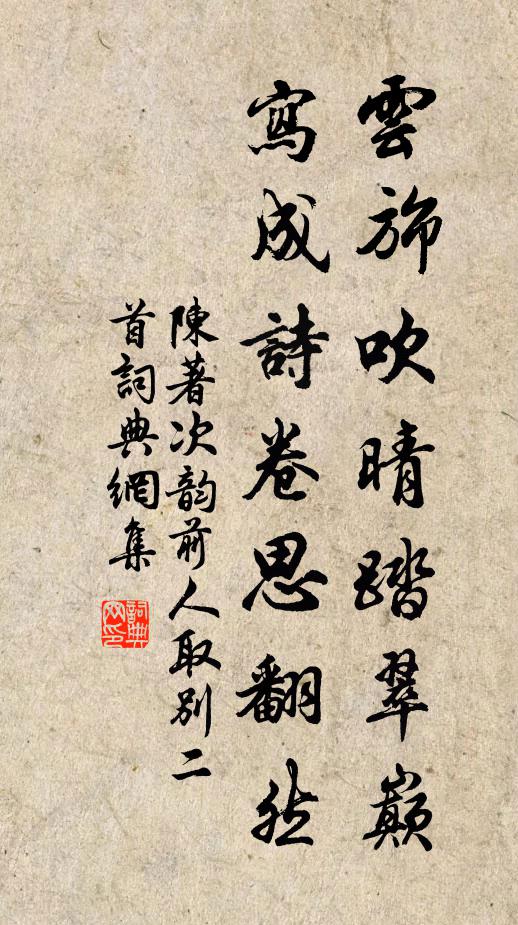 雲斾吹晴踏翠巔
寫成詩卷思翻然
陳著次韵前人取別二
首詞典網集
詞典网印